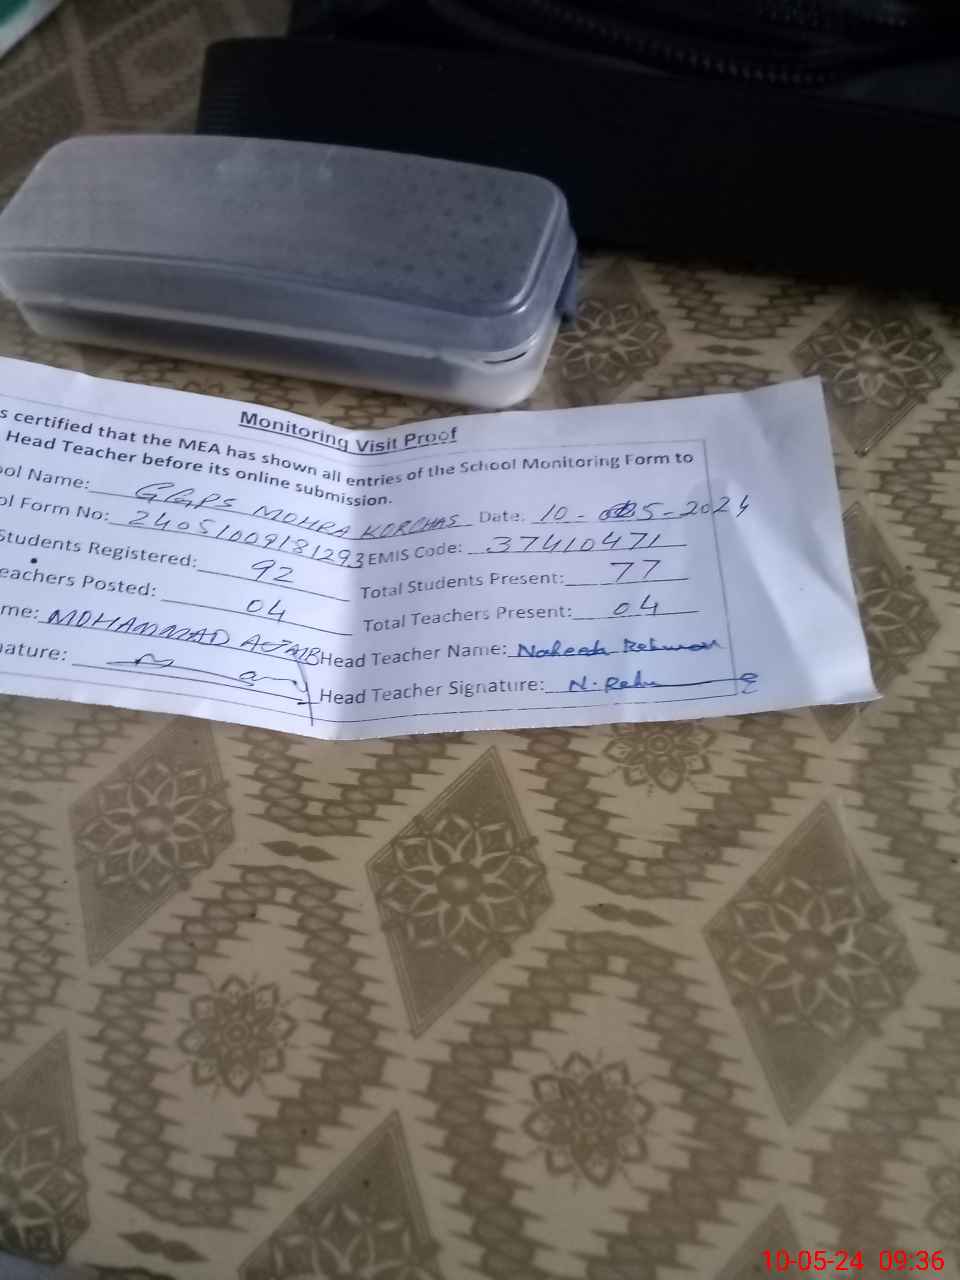 Monitoring Visit Proof
s certified that the MEA has shown all entries of the School Monitoring Form to
Head Teacher before its online submission.
ool Name: GGPS MOHRA KORCHAS Date: 10-05-2024
ol Form No: 24051009181293 EMIS Code: 37410471
Students Registered: 92 Total Students Present: 77
eachers Posted: 04 Total Teachers Present: 04
me: MOHAMMAD AJAIB Head Teacher Name: Naheed Rehman
nature: Head Teacher Signature: N. Rehn
10-05-24 09:36